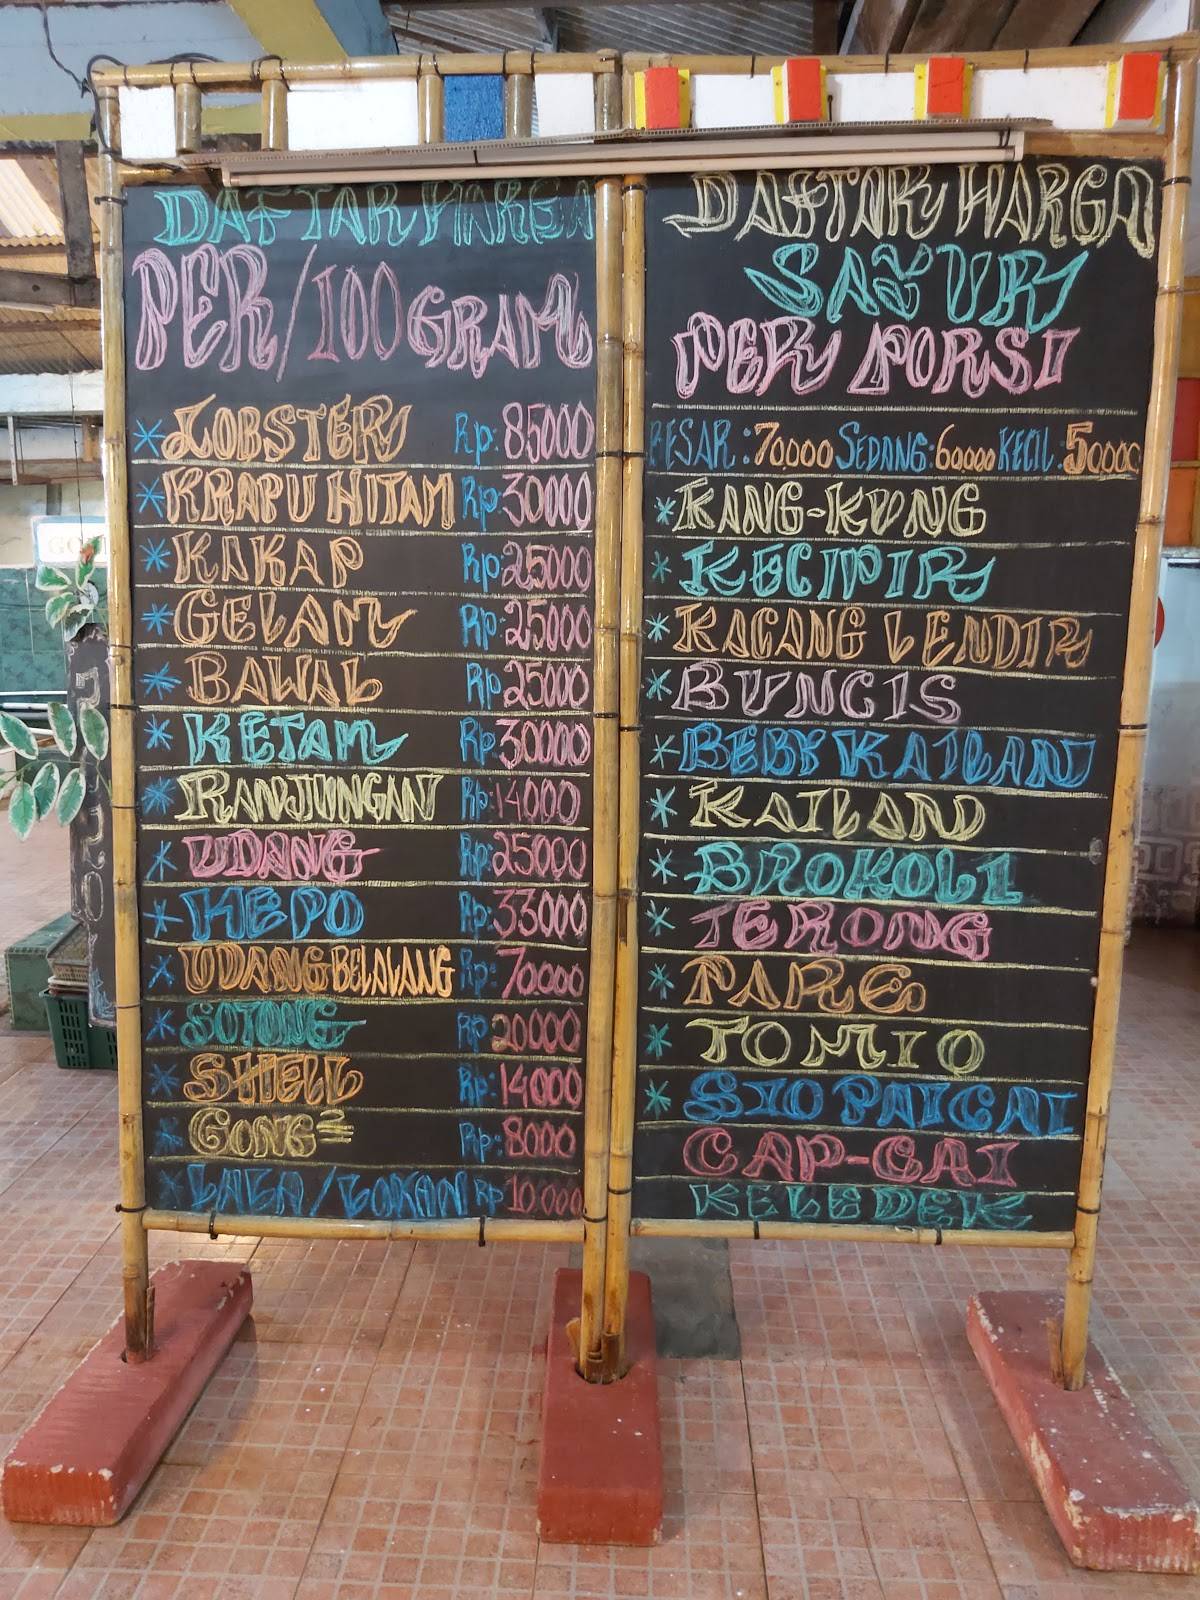 DAFTAR HARGA
PER/100 GRAM
* LOBSTER Rp: 85000
* KRAPU HITAM Rp: 30000
* KAKAP Rp: 25000
* GELAM Rp: 25000
* BAWAL Rp 25000
* KETAM Rp 30000
* RANJUNGAN Rp: 14000
* UDANG Rp: 25000
* KEPO Rp: 33000
* UDANG BELALANG Rp: 70000
* SOTONG Rp: 20000
* SHELL Rp: 14000
* GONG= Rp: 8000
* LALA/LOKAN Rp 10000
DAFTAR HARGA
SAYUR
PER PORSI
BESAR : 70000 SEDANG: 60000 KECIL : 50000
* KANG-KUNG
* KECIPIR
* KACANG LENDIR
* BUNCIS
* BEBY KAILAN
* KAILAN
* BROKOLI
* TERONG
* PARE
* TOMIO
* SIO PAICAI
CAP-CAI
KELEDEK